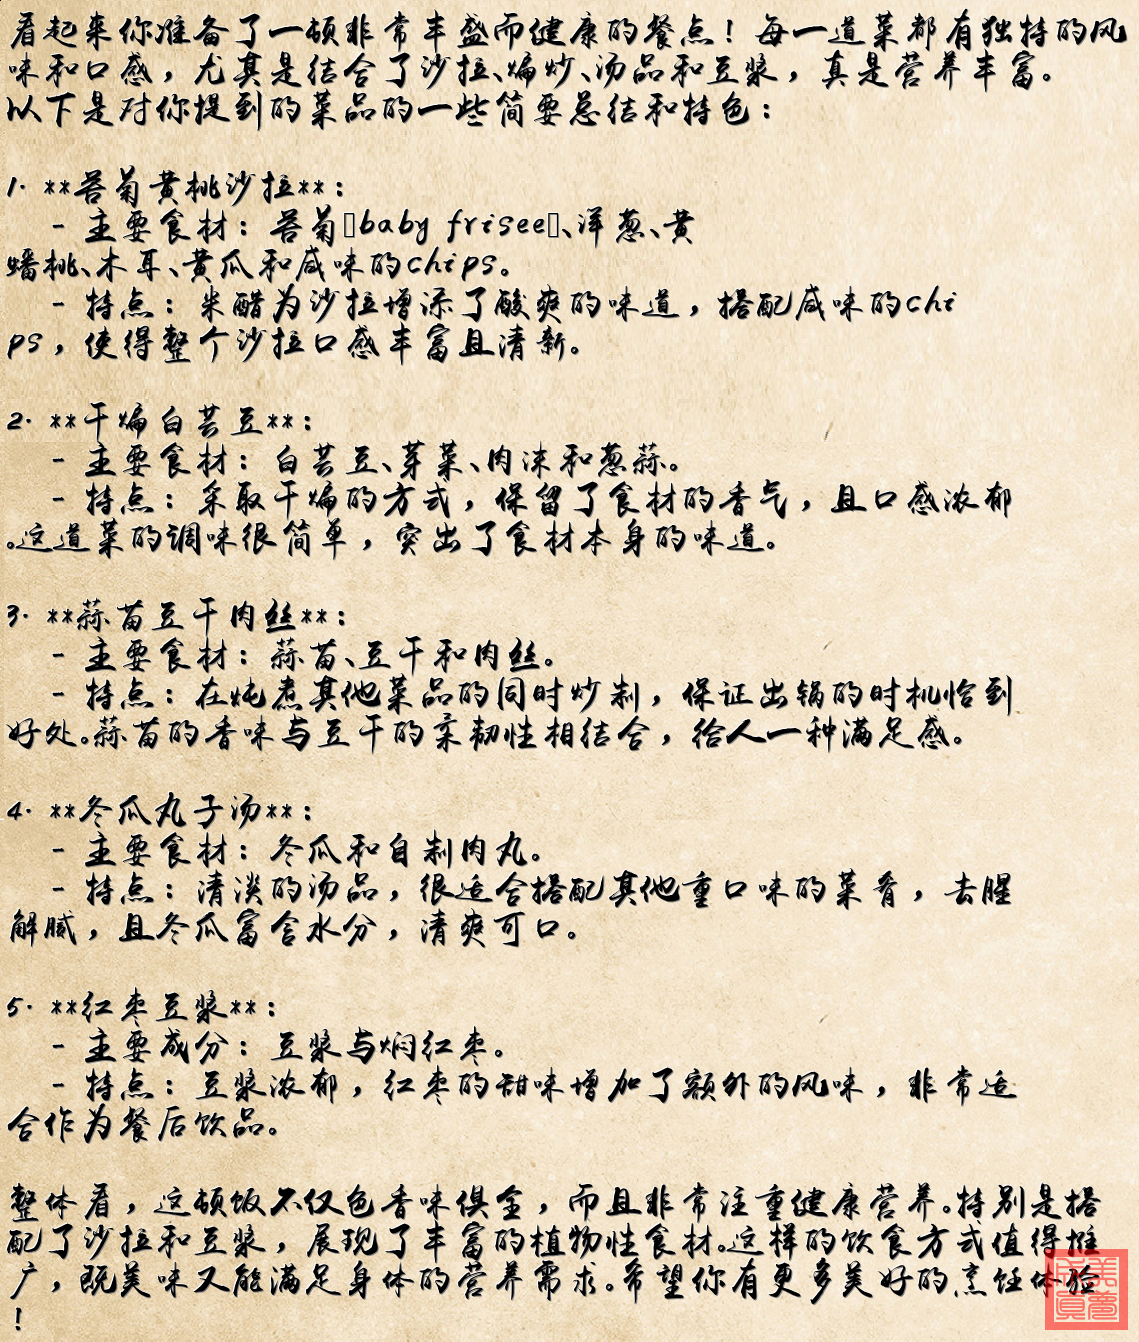 看起来你准备了一顿非常丰盛而健康的餐点！每一道菜都有独特的风
味和口感，尤其是结合了沙拉、煸炒、汤品和豆浆，真是营养丰富。
以下是对你提到的菜品的一些简要总结和特色：
1. **苦菊黄桃沙拉**：
- 主要食材：苦菊（baby frisee）、洋葱、黄
蟠桃、木耳、黄瓜和咸味的chips。
- 特点：米醋为沙拉增添了酸爽的味道，搭配咸味的chi
ps，使得整个沙拉口感丰富且清新。
2. **干煸白芸豆**：
- 主要食材：白芸豆、芽菜、肉沫和葱蒜。
- 特点：采取干煸的方式，保留了食材的香气，且口感浓郁
。这道菜的调味很简单，突出了食材本身的味道。
3. **蒜苗豆干肉丝**：
- 主要食材：蒜苗、豆干和肉丝。
- 特点：在炖煮其他菜品的同时炒制，保证出锅的时机恰到
好处。蒜苗的香味与豆干的柔韧性相结合，给人一种满足感。
4. **冬瓜丸子汤**：
- 主要食材：冬瓜和自制肉丸。
- 特点：清淡的汤品，很适合搭配其他重口味的菜肴，去腥
解腻，且冬瓜富含水分，清爽可口。
5. **红枣豆浆**：
- 主要成分：豆浆与焖红枣。
- 特点：豆浆浓郁，红枣的甜味增加了额外的风味，非常适
合作为餐后饮品。
整体看，这顿饭不仅色香味俱全，而且非常注重健康营养。特别是搭
配了沙拉和豆浆，展现了丰富的植物性食材。这样的饮食方式值得推
广，既美味又能满足身体的营养需求。希望你有更多美好的烹饪体验
！
美梦成真